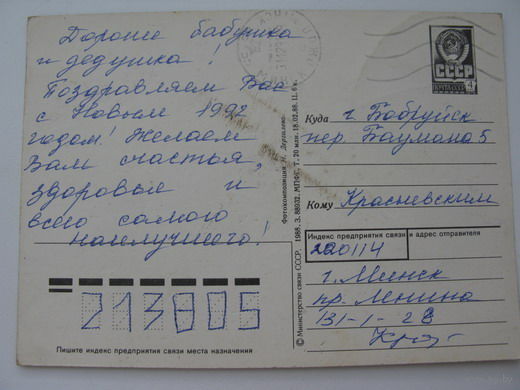 Дорогие бабушка
и дедушка!
Поздравляем Вас
с Новым 1992
годом! Желаем
Вам счастья,
здоровья и
всего самого
наилучшего!
213805
Пишите индекс предприятия связи места назначения
Фотокомпозиция Н. Дергилёво
© Министерство связи СССР. 1988. З. 88032. МПФГ. Т. 20 млн. 18.02.88. Ц. 6 к.
СССР
4
Куда г. Бобруйск
пер. Баумана 5
Кому Красневским
Индекс предприятия связи и адрес отправителя
220114
г. Минск
пр. Ленина
131-1-28